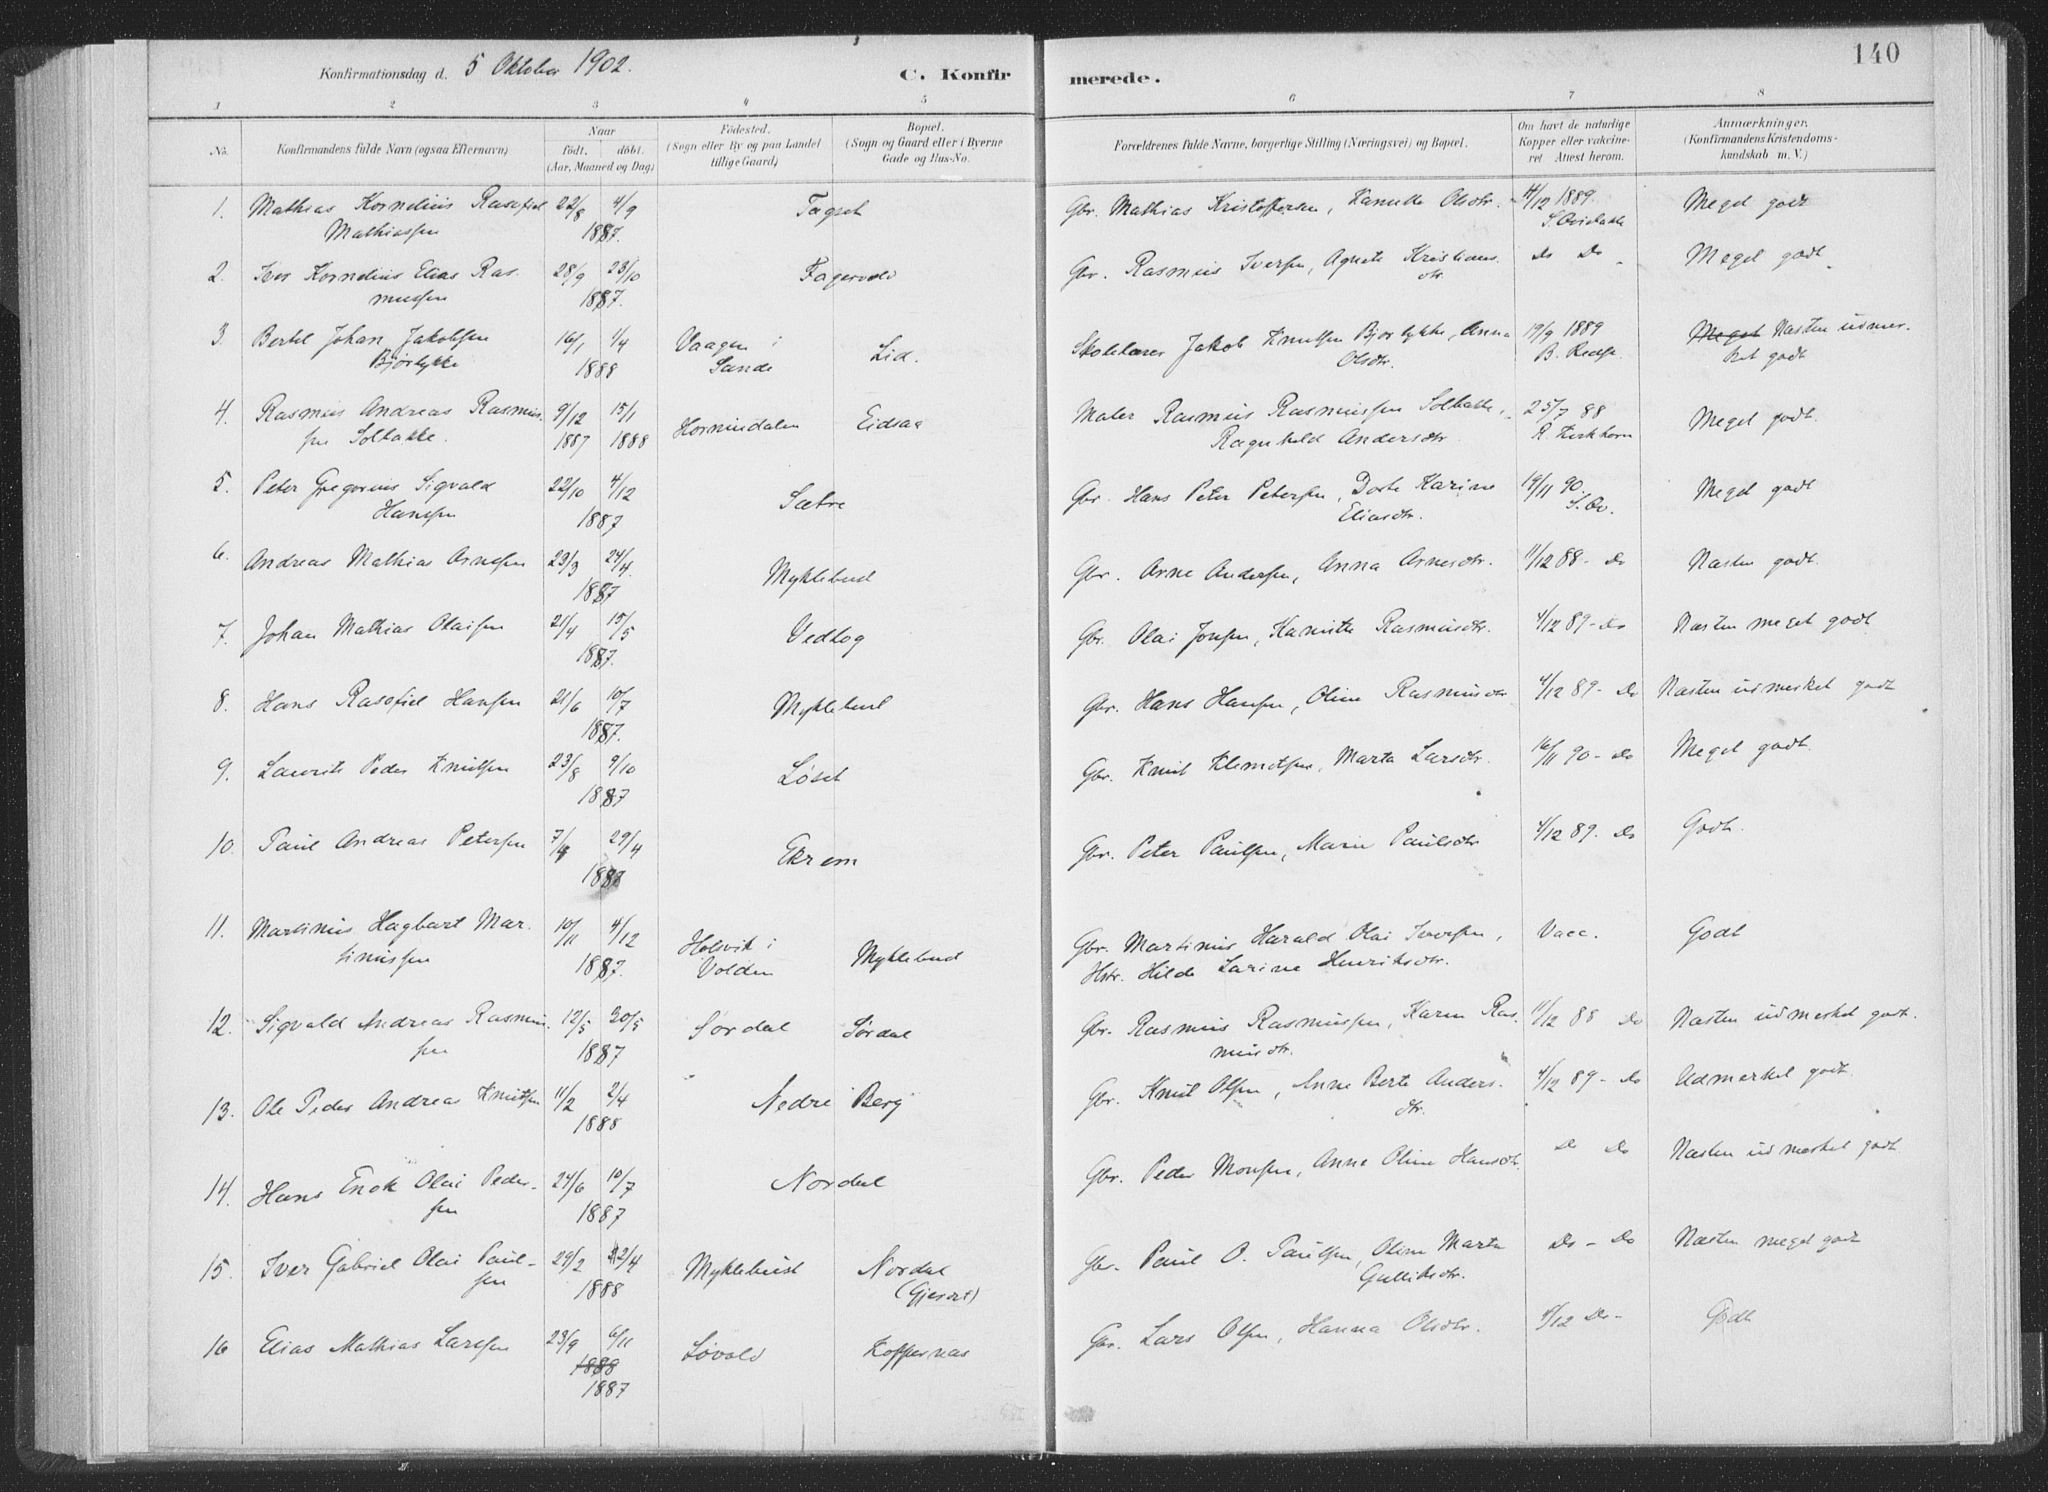 140
Konfirmationsdag d. 5 Oktober 1902.
C. Konfirmerede.
1 2 3 4 5 6 7 8
No.
Konfirmandens fulde Navn (ogsaa Efternavn)
Naar
födt. döbt.
(Aar, Maaned og Dag)
Födested.
(Sogn eller By og paa Landet
tillige Gaard)
Bopæl.
(Sogn og Gaard eller i Byerne
Gade og Hus-No.
Forældrenes fulde Navne, borgerlige Stilling (Næringsvei) og Bopæl.
Om havt de naturlige
Kopper eller vakcine-
ret Attest herom.
Anmærkninger.
(Konfirmandens Kristendoms-
kundskab m. V.)
1. Mathias Kornelius Rasofiel 22/8 4/9 Fagset Gbr. Mathias Kristoffersen, Kanutte Olsdtr. 4/12 1889. Meget godt
Mathiassen 1887.
2. Iver Kornelius Elias Ras- 28/9 23/10 Fagervold Gbr. Rasmus Iversen, Agnete Kristians- Do Do - Meget godt
mussen 1887. dtr.
3. Bertel Johan Jakobsen 16/1 1/4 Vaagen i Lid. Skolelærer Jakob Knutsen Bjørlykke, Anna 19/9 1889 Meget Næsten udmer-
Bjørlykke 1888 Sande Olsdtr. ket godt
4. Rasmus Andreas Rasmus- 9/12 15/1 Hornindalen Eidsaa Maler Rasmus Rasmussen Solbakke, 25/7 88 Meget godt.
sen Solbakke. 1887 1888 Ragnhild Andersdtr. R. Kirkhorn
5. Peter Gregorius Sigvald 22/10 4/12 Sætre Gbr. Hans Peter Petersen, Dorte Karine 19/11 90. Meget godt
Hansen 1887 Eliasdtr. S. Øv.
6. Andreas Mathias Arnesen 23/3 24/4 Myklebust Gbr. Arne Andersen, Anna Arnesdtr. 11/12 88 - Do Næsten godt.
1887
7. Johan Mathias Olaisen 21/4 15/5 Vedlog Gbr. Olai Jonsen, Kanutte Rasmusdtr. 4/12 89 - Do Næsten meget godt
1887.
8. Hans Rasofiel Hansen 21/6 10/7 Myklebust Gbr. Hans Hansen, Oline Rasmusdtr 4/12 89 - Do Næsten udmerket godt
1887.
9. Laurits Peder Knutsen 23/8 9/10 Løset Gbr. Knut Klemetsen, Marta Larsdtr. 16/11 90 - Do Meget godt.
1887
10. Paul Andreas Petersen 7/4 29/4 Ekrem Gbr. Peter Paulsen, Marie Paulsdtr 4/12 89. Do Godt.
1888
11. Martinus Hagbart Mar- 10/11 4/12 Holvik i Myklebust Gbr. Martinus Harald Olai Iversen, Vacc. Godt
tinussen 1887. Volden Hstr. Hilda Larine Henriksdtr.
12. Sigvald Andreas Rasmus- 12/5 30/5 Sørdal Sørdal Gbr. Rasmus Rasmussen, Karen Ras- 11/12 88 Do Næsten udmerket godt.
sen 1887 musdtr.
13. Ole Peder Andreas Knutsen 11/2 2/4 Nedre Berg Gbr. Knut Olsen, Anne Berte Anders- 4/12 89 - Do Udmerket godt.
1888 dtr.
14. Hans Enok Olai Peder- 24/6 10/7 Nordal Gbr. Peder Monsen, Anne Oline Hansdtr. Do Do Næsten udmerket godt
sen 1887
15. Iver Gabriel Olai Paul- 29/2 22/4 Myklebust Nordal Gbr. Paul O. Paulsen, Oline Marta Do - Do Næsten meget godt
sen 1888 Gulliksdtr.
16 Elias Mathias Larssen 23/9 6/11 Løvold Koppernæs Gbr. Lars Olsen, Hanna Olsdtr. 4/12 Do - Godt
1888
1887